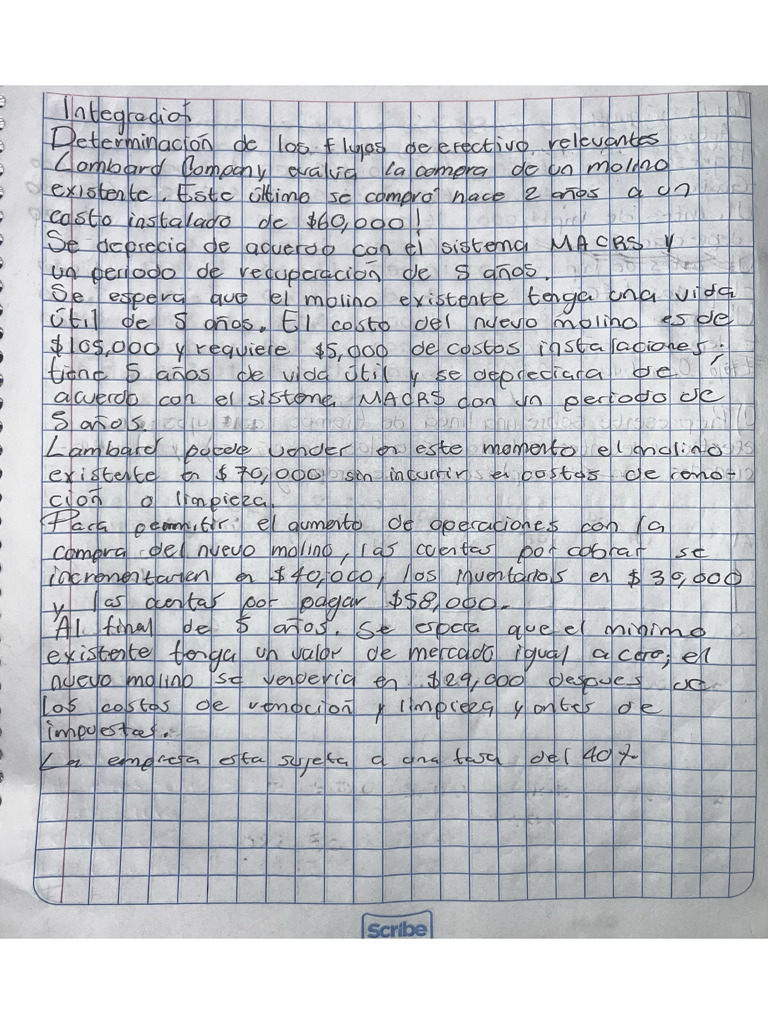 Integración
Determinación de los flujos de efectivo relevantes
Lombard Company evalúa la compra de un molino
existente. Este último se compró hace 2 años a un
costo instalado de $60,000!
Se deprecia de acuerdo con el sistema MACRS y
un periodo de recuperación de 5 años.
Se espera que el molino existente tenga una vida
útil de 5 años. El costo del nuevo molino es de
$105,000 y requiere $5,000 de costos instalaciones.
tiene 5 años de vida útil y se depreciara de
acuerdo con el sistema MACRS con un periodo de
5 años.
Lambard puede vender en este momento el molino
existente en $70,000 sin incurrir en costos de remo-
ción o limpieza.
Para permitir el aumento de operaciones con la
compra del nuevo molino, las cuentas por cobrar se
incrementarien en $40,000, los inventarios en $30,000
y las cuentas por pagar $58,000.
Al final de 5 años. Se espera que el minimo
existente tenga un valor de mercado igual a cero; el
nuevo molino se venderia en $29,000 despues de
los costos de remoción y limpieza y antes de
impuestas.
La empresa esta sujeta a una tasa del 40%
Scribe